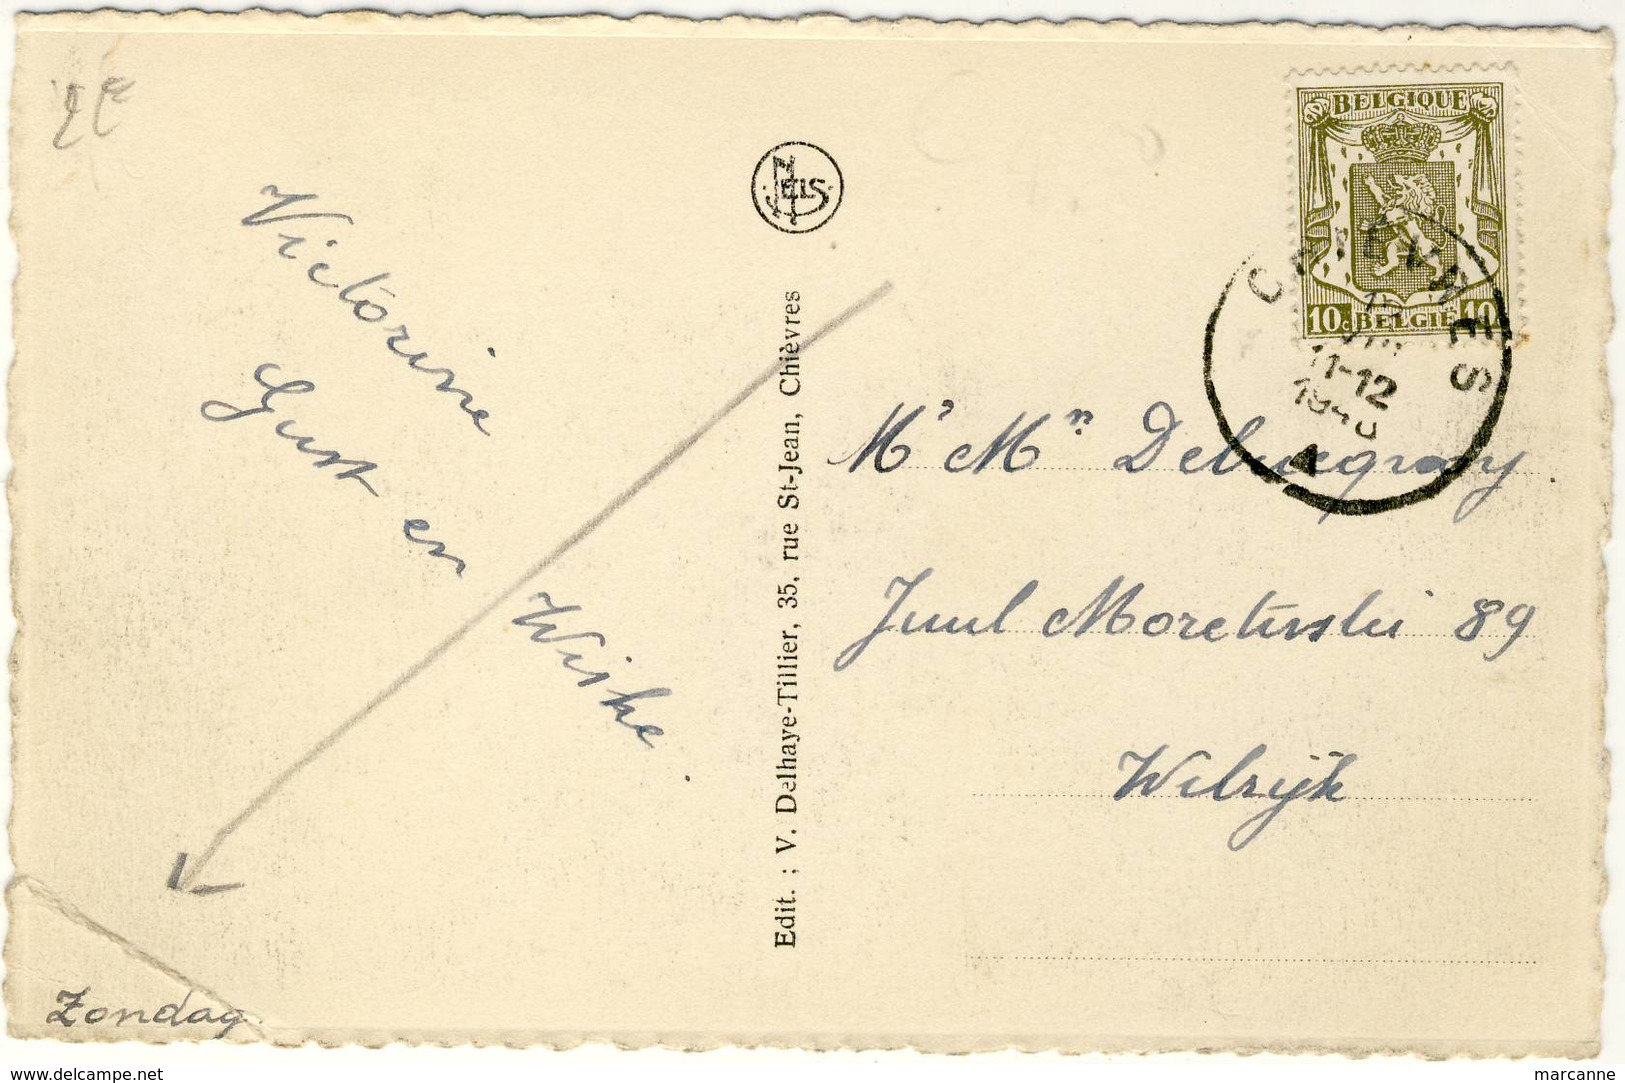 Victorine
Gust en
Wiske
Zondag
NELS
Edit. ; V. Delhaye-Tillier, 35, rue St-Jean, Chièvres
BELGIQUE
10c BELGIE 10
CHIEVRES
11-12
A
Mr Mn
Juul Moretuslei 89
Wilrijk
www.delcampe.net
marcanne